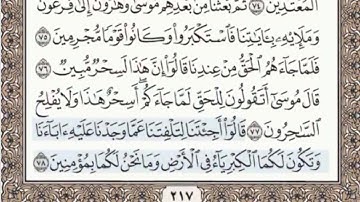 ٱلْمُعْتَدِينَ ٧٤ ثُمَّ بَعَثْنَا مِنۢ بَعْدِهِم مُّوسَىٰ وَهَٰرُونَ إِلَىٰ فِرْعَوْنَ
وَمَلَإِي۟هِۦ بِـَٔايَٰتِنَا فَٱسْتَكْبَرُوا۟ وَكَانُوا۟ قَوْمًا مُّجْرِمِينَ ٧٥
فَلَمَّا جَآءَهُمُ ٱلْحَقُّ مِنْ عِندِنَا قَالُوٓا۟ إِنَّ هَٰذَا لَسِحْرٌ مُّبِينٌ ٧٦
قَالَ مُوسَىٰٓ أَتَقُولُونَ لِلْحَقِّ لَمَّا جَآءَكُمْ أَسِحْرٌ هَٰذَا وَلَا يُفْلِحُ
ٱلسَّٰحِرُونَ ٧٧ قَالُوٓا۟ أَجِئْتَنَا لِتَلْفِتَنَا عَمَّا وَجَدْنَا عَلَيْهِ ءَابَآءَنَا
وَتَكُونَ لَكُمَا ٱلْكِبْرِيَآءُ فِى ٱلْأَرْضِ وَمَا نَحْنُ لَكُمَا بِمُؤْمِنِينَ ٧٨
٢١٧